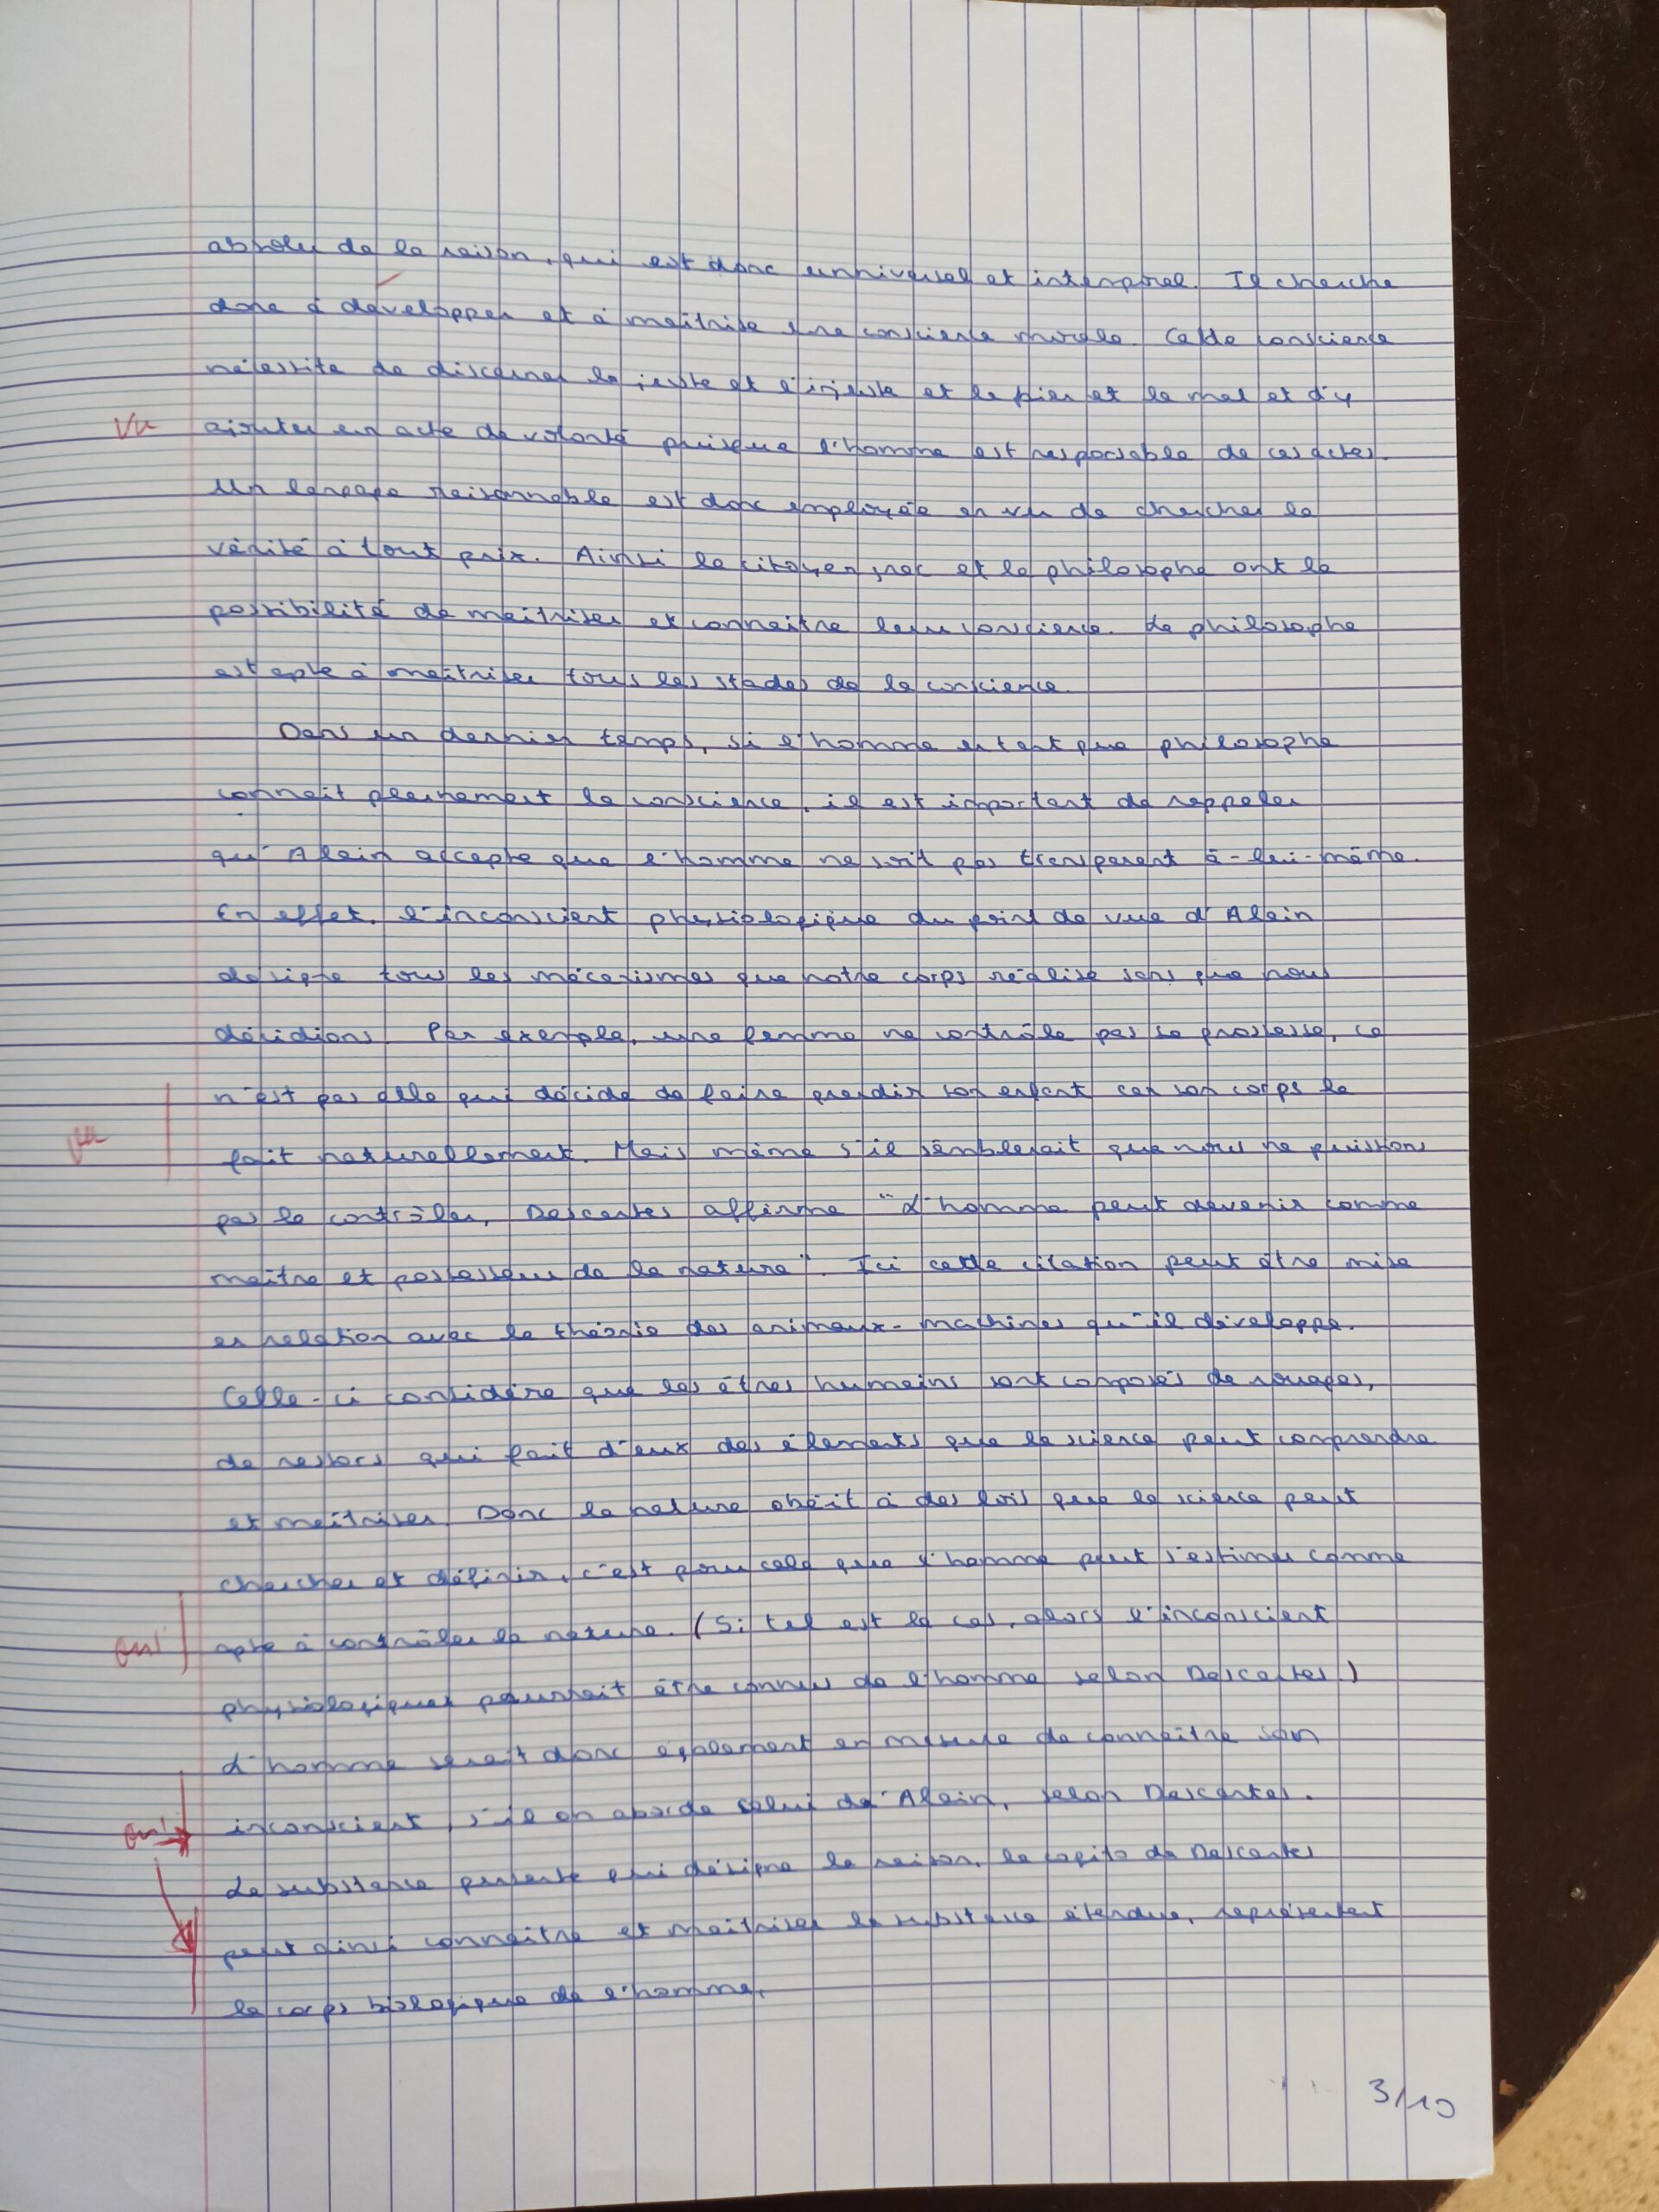 absolu de la raison, qui est donc unniversel et intemporel. Il cherche
donc à développer et à maîtrise une conscience morale. Cette conscience
nécessite de discerner le juste et l'injuste et le bien et le mal et d'y
Vu ajouter un acte de volonté puisque l'homme est responsable de ces actes.
Un langage raisonnable est donc employée en vu de chercher la
vérité à tout prix. Ainsi le citoyen, et le philosophe ont la
possibilité de maîtriser et connaître leur conscience. Le philosophe
est apte à maîtriser tous les stades de la conscience.
Dans un dernier temps, si l'homme en tant que philosophe
connait pleinement la conscience, il est important de rappeler
qu'Alain accepte que l'homme ne soit pas transparent à-lui-même.
En effet, l'inconscient physiologique du point de vue d'Alain
designe tous les mécanismes que notre corps réalise sans que nous
décidions. Par exemple, une femme ne contrôle pas sa grossesse, ce
n'est pas elle qui décide de faire grandir son enfant car son corps le
fait naturellement. Mais même s'il semblerait que nous ne puissions
pas le contrôler, Descartes affirme "L'homme peut devenir comme
maître et possesseur de la nature". Ici cette citation peut être mise
en relation avec la théorie des animaux-machines qu'il développe.
Celle-ci considère que les êtres humains sont composés de rouages,
de ressors qui fait d'eux des élements que la science peut comprendre
et maîtriser. Donc la nature obéit à des lois que la science peut
chercher et définir, c'est pour cela que l'homme peut s'estimer comme
oui apte à contrôler la nature. (Si tel est le cas, alors l'inconscient
physiologiques pourrait être connus de l'homme selon Descartes.)
L'homme serait donc également en mesure de connaître son
oui inconscient, s'il on aborde celui de Alain, selon Descartes.
La substance pensante qui désigne la raison, le cogito de Descartes
peut ainsi connaitre et maîtriser la substance étendue, représentant
le corps biologique de l'homme.
3/10